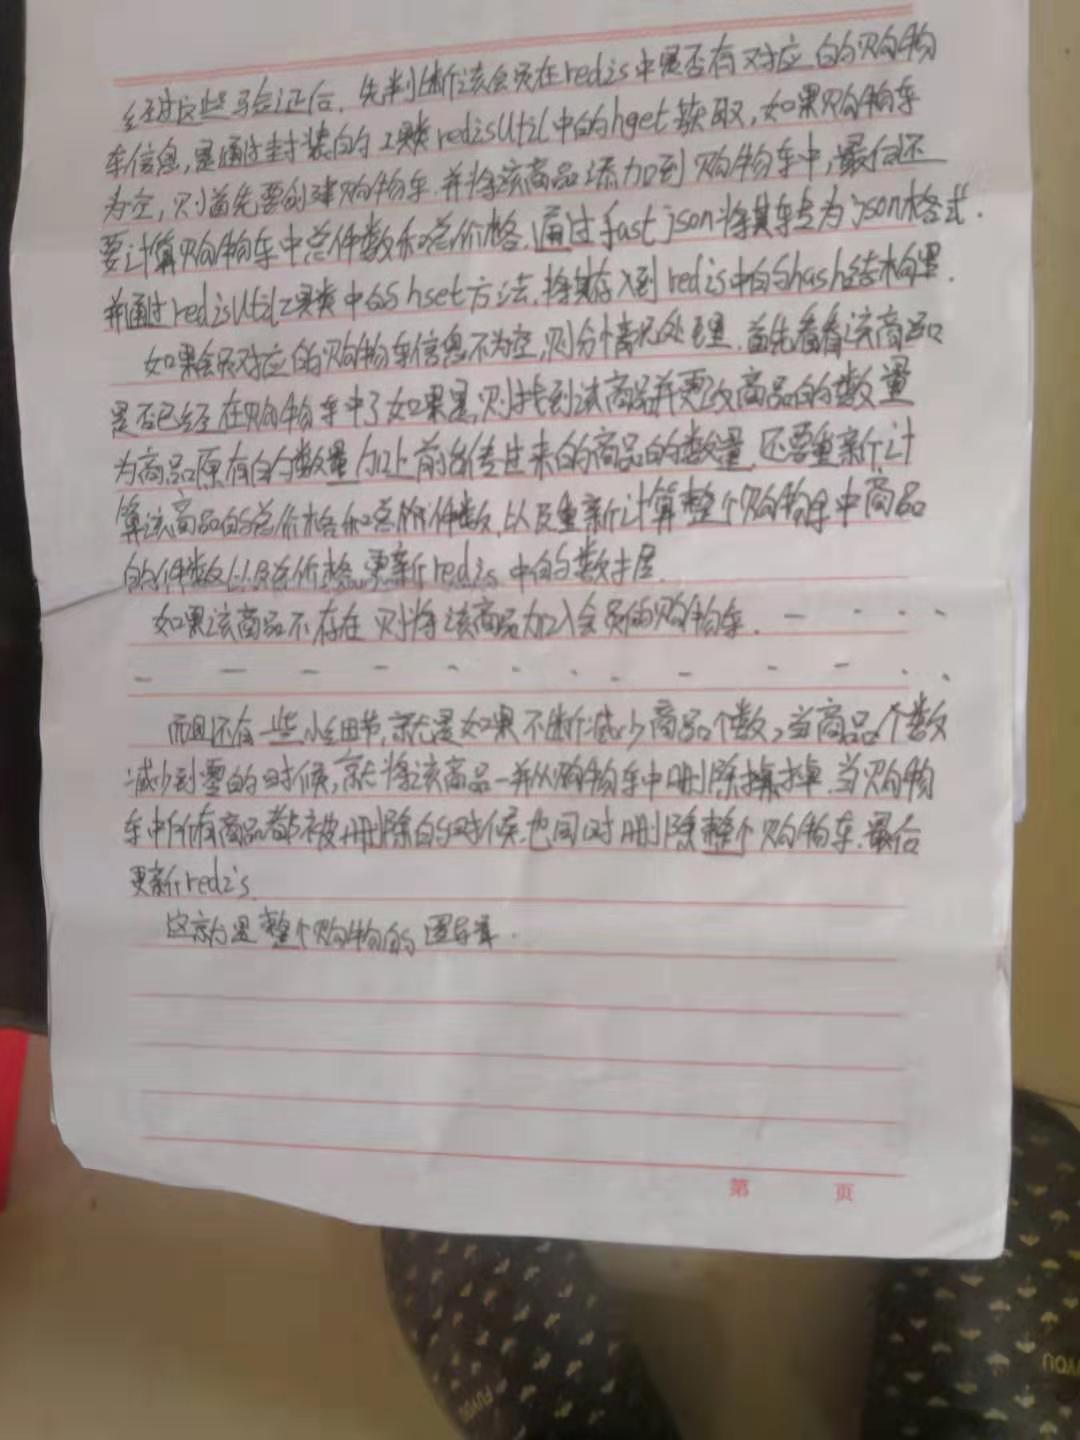 经过这些验证后，先判断该会员在redis中是否有对应的购物
车信息，是通过封装的工具类redisUtil中的hget获取，如果购物车
为空，则首先要创建购物车，并将该商品添加到购物车中，最后还
要计算购物车中总件数和总价格，通过fastjson将其转为json格式．
并通过redisUtil工具类中的hset方法，将其存入到redis中的hash结构里．
如果会员对应的购物车信息不为空，则分情况处理．首先看看该商品
是否已经在购物车中了如果是，则找到该商品并更改商品的数量
为商品原有的数量加上前台传过来的商品的数量，还要重新计
算该商品的总价格和总件数，以及重新计算整个购物车中商品
的件数以及总价格，更新redis中的数据．
如果该商品不存在，则将该商品加入会员的购物车．
而且还有一些小细节，就是如果不断减少商品个数，当商品个数
减少到零的时候，就将该商品一并从购物车中删除掉，当购物
车中所有商品都被删除的时候，也同时删除整个购物车．最后
更新redis．
这就是整个购物的
第 页
FUYOU